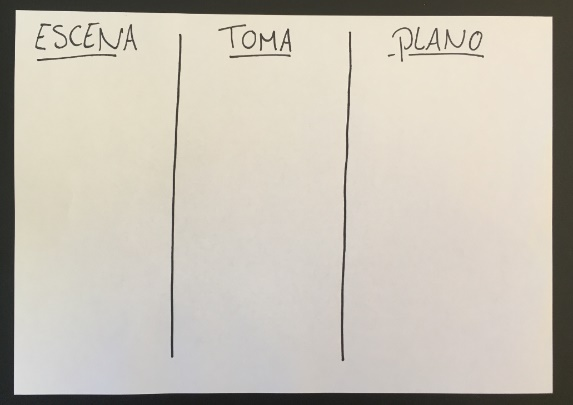 ESCENA TOMA PLANO